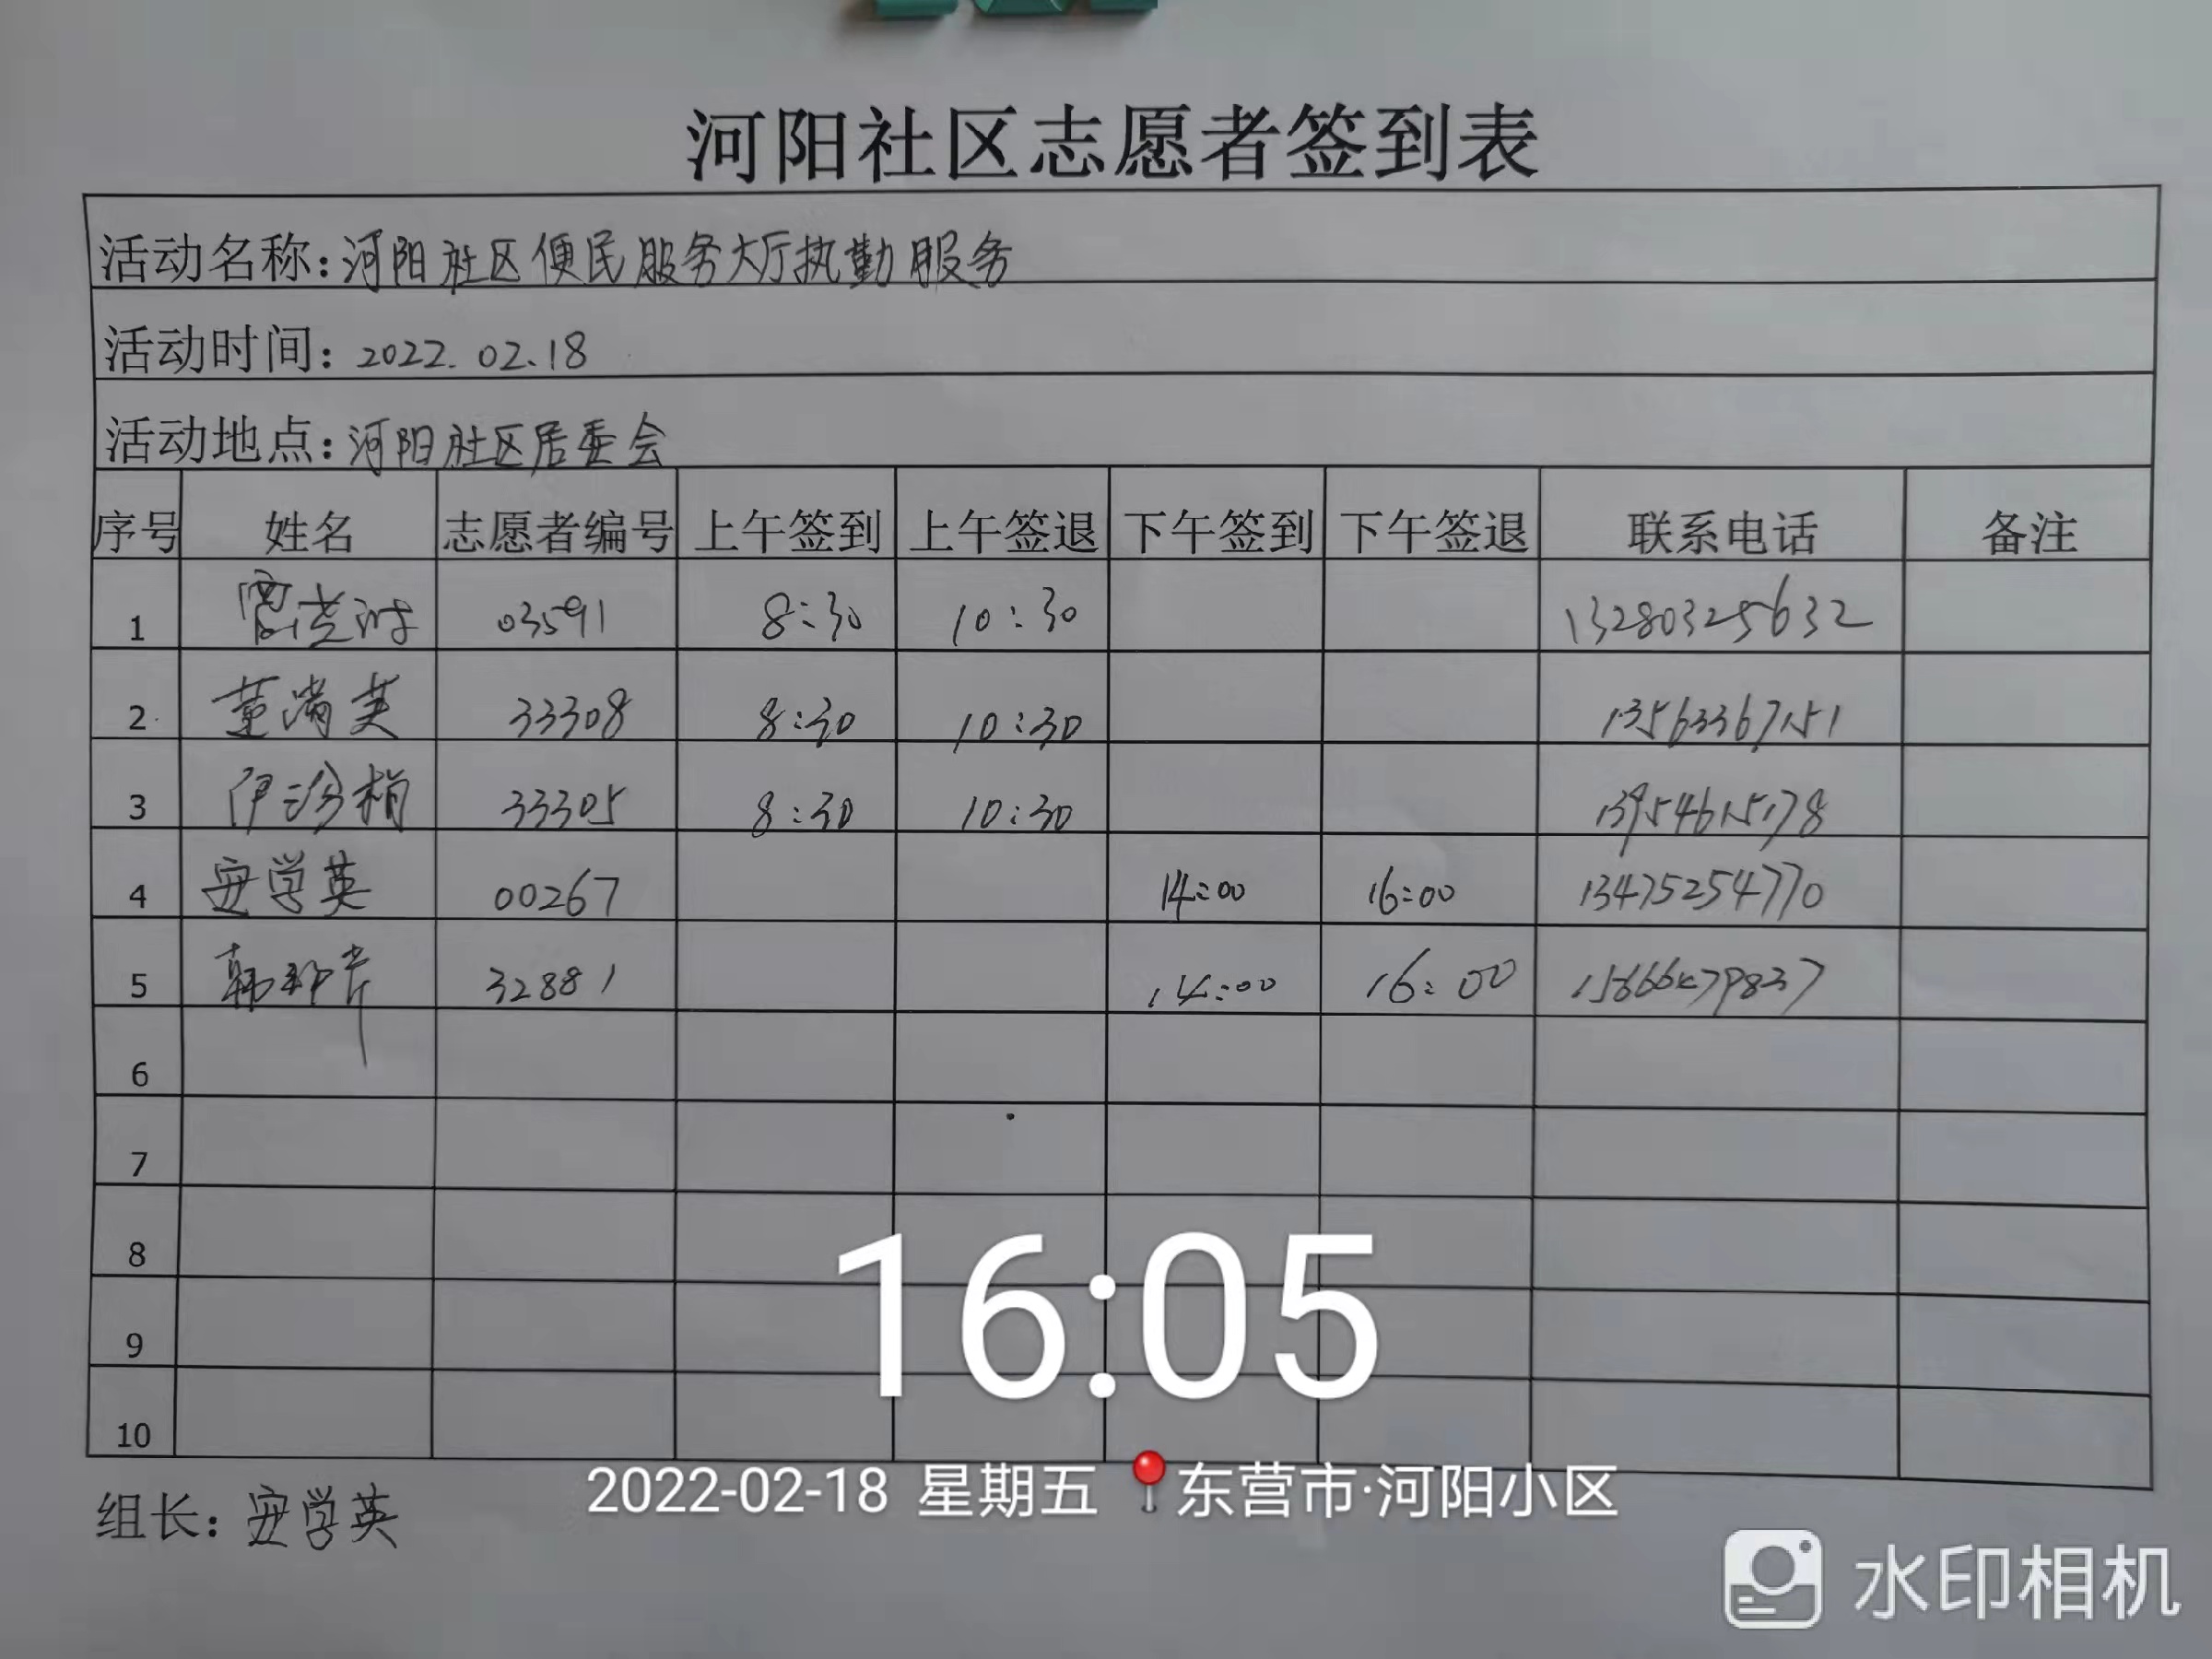 河阳社区志愿者签到表
活动名称:河阳社区便民服务大厅执勤服务
活动时间: 2022.02.18
活动地点:河阳社区居委会
序号 姓名 志愿者编号 上午签到 上午签退 下午签到 下午签退 联系电话 备注
1 03591 8:30 10:30 13280325632
2 董满芙 33308 8:30 10:30 13563367151
3 33305 8:30 10:30 13954615178
4 安学英 00267 14:00 16:00 13475254770
5 32881 14:00 16:00
6
7
8
9
10
16:05
2022-02-18 星期五 东营市·河阳小区
组长: 安学英
水印相机